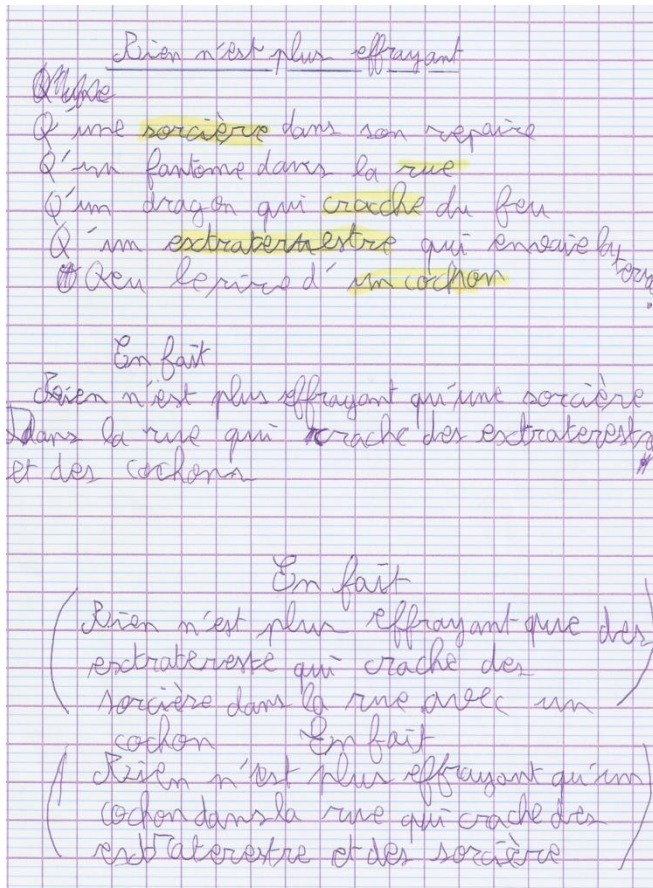 Rien n'est plus effrayant
Q'une sorcière dans son repaire
Q'un fantome dans la rue
Q'un dragon qui crache du feu
Q'un extraterrestre qui envaie la terre.
Qeu le rire d'un cochon
En fait
Rien n'est plus effrayant qu'une sorcière
Dans la rue qui crache des extraterestre
et des cochons
En fait
Rien n'est plus effrayant que des
extratereste qui crache des
sorcière dans la rue avec un
cochon En fait
Rien n'est plus effrayant qu'un
cochon dans la rue qui crache des
extraterestre et des sorcière